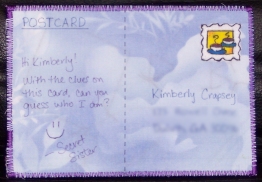 POSTCARD
Hi Kimberly!
With the clues on
this card, can you
guess who I am?
Secret
Sister
Kimberly Crapsey